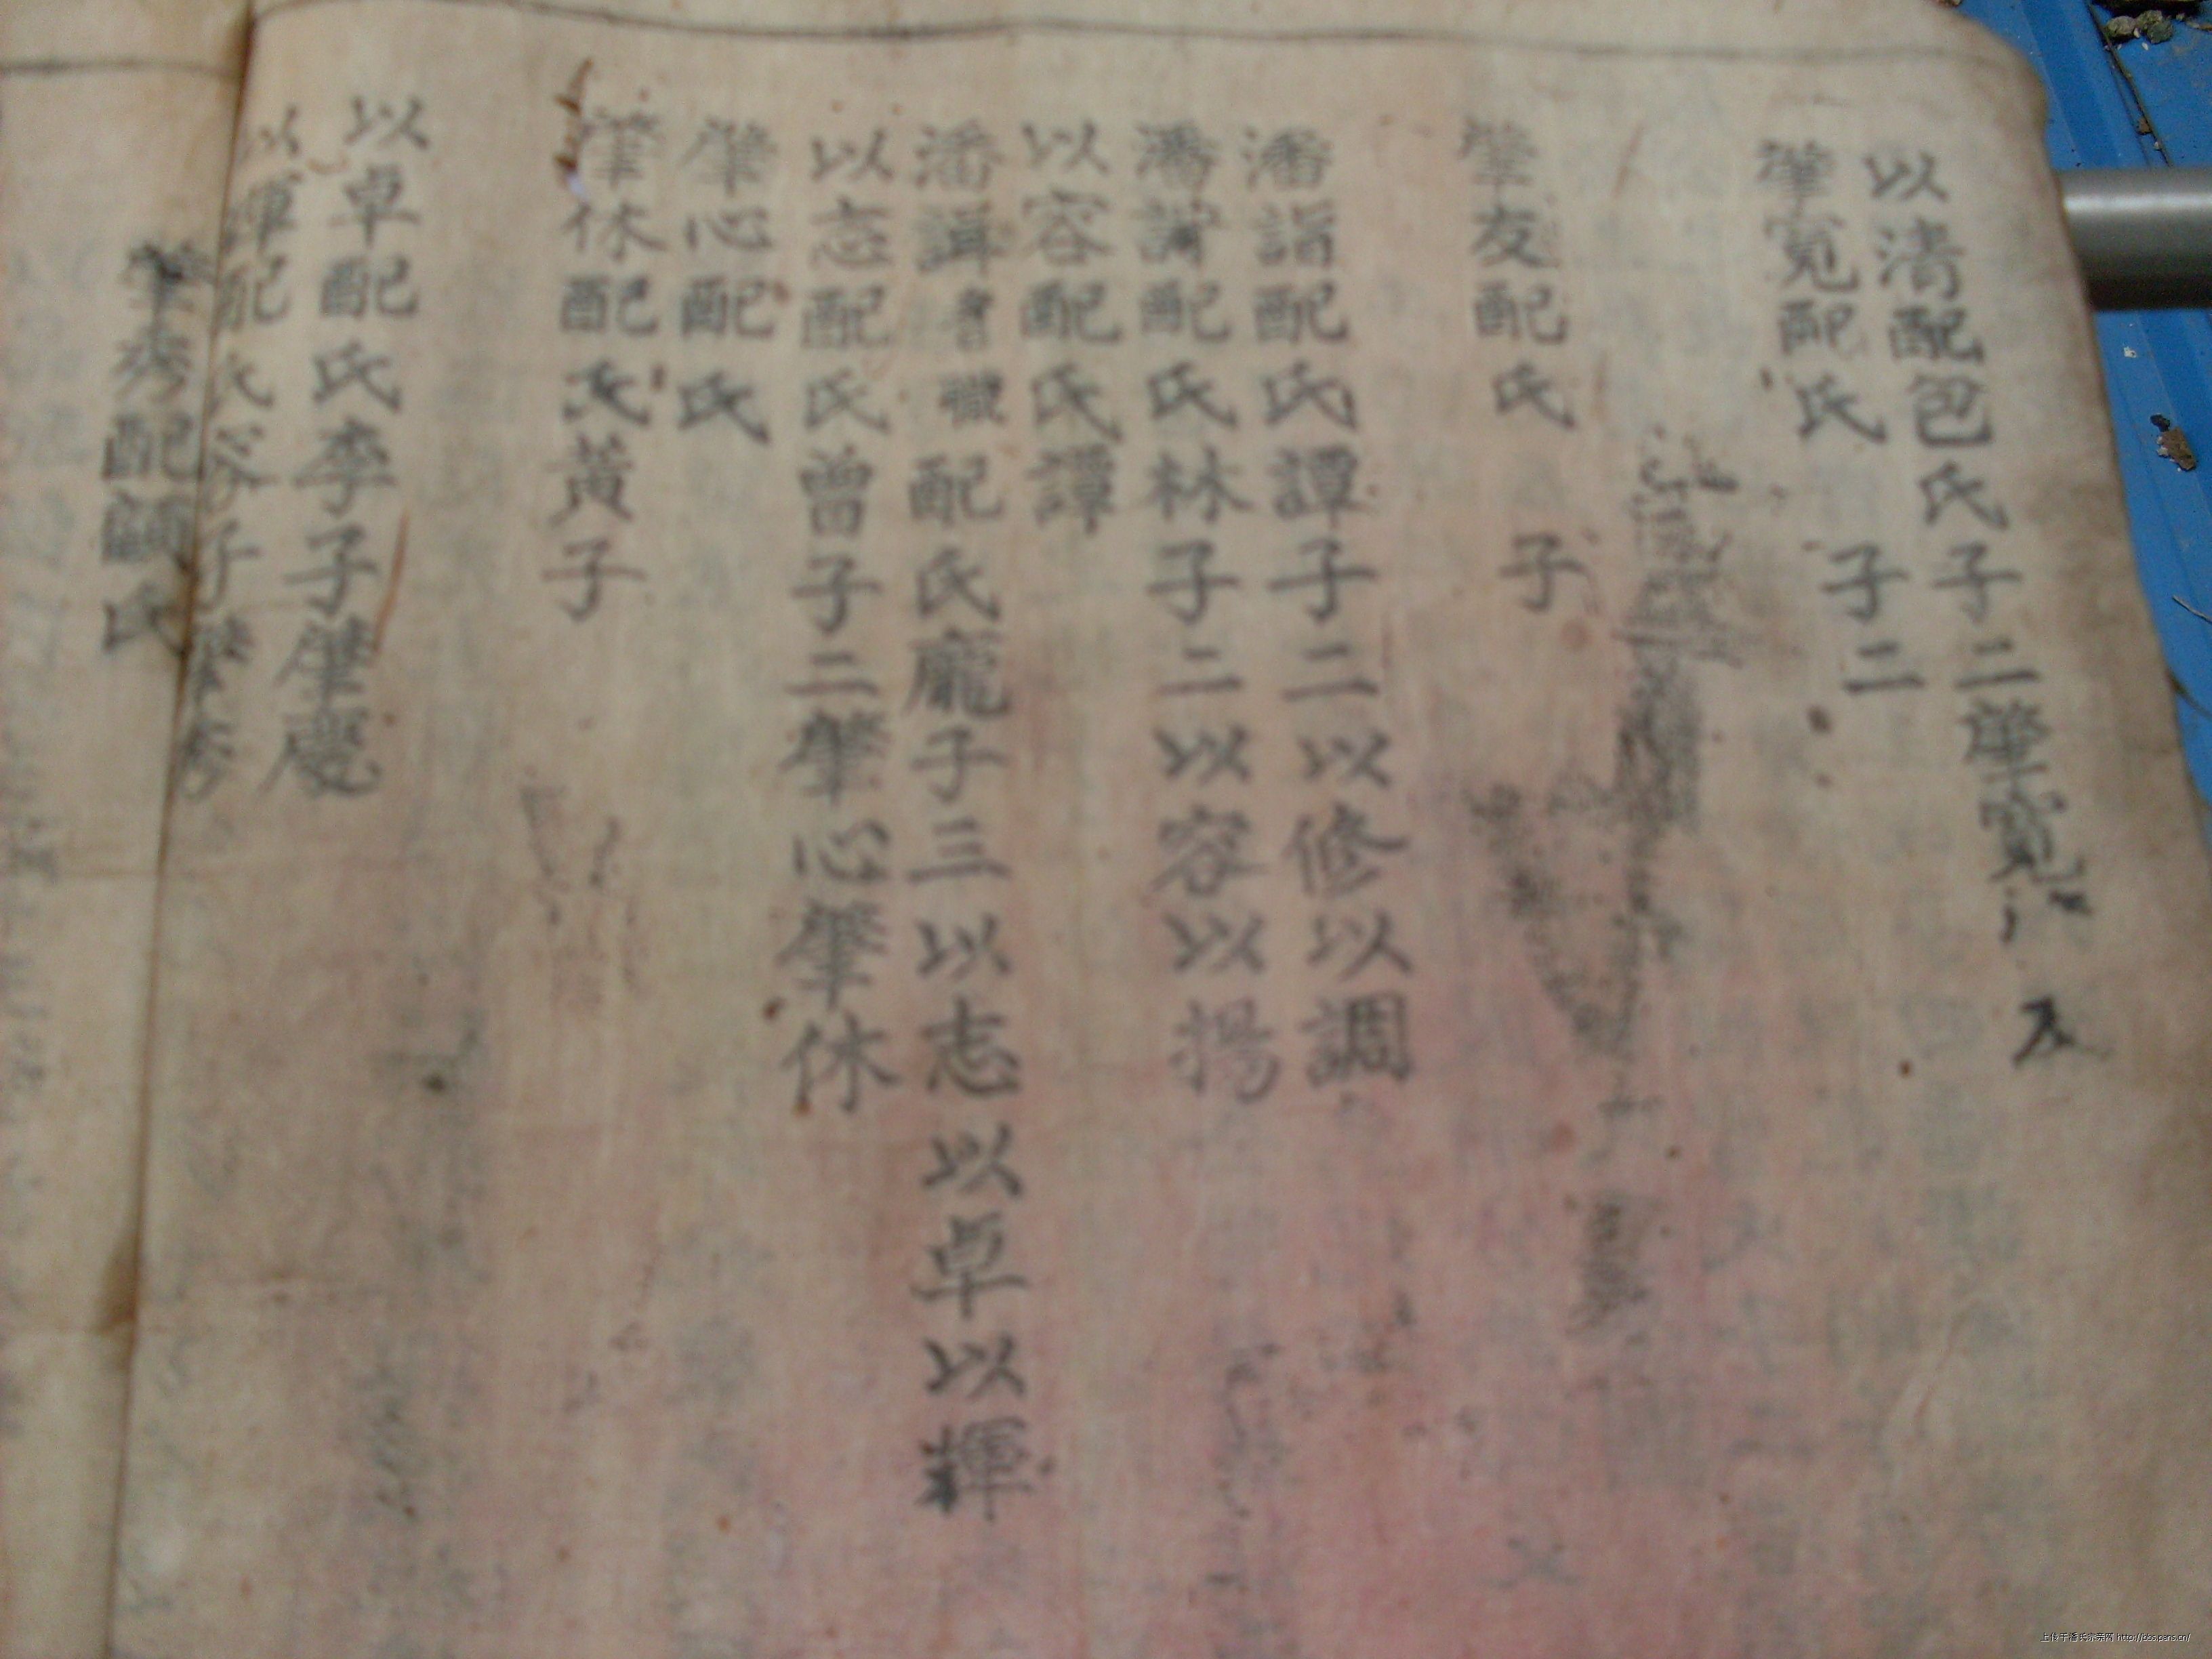 以清配包氏子二肇寬肇友
肇寬配氏 子二
肇友配氏 子
潘詣配氏譚子二以修以調
潘配氏林子二以容以揚
以容配氏譚
潘諿耆職配氏龐子三以志以卓以輝
以志配氏曾子二肇心肇休
肇心配氏
肇休配氏黃子
以卓配氏李子肇慶
以輝配氏子肇秀
肇秀配顧氏
上传于潘氏宗亲网 http://bbs.pans.cn/